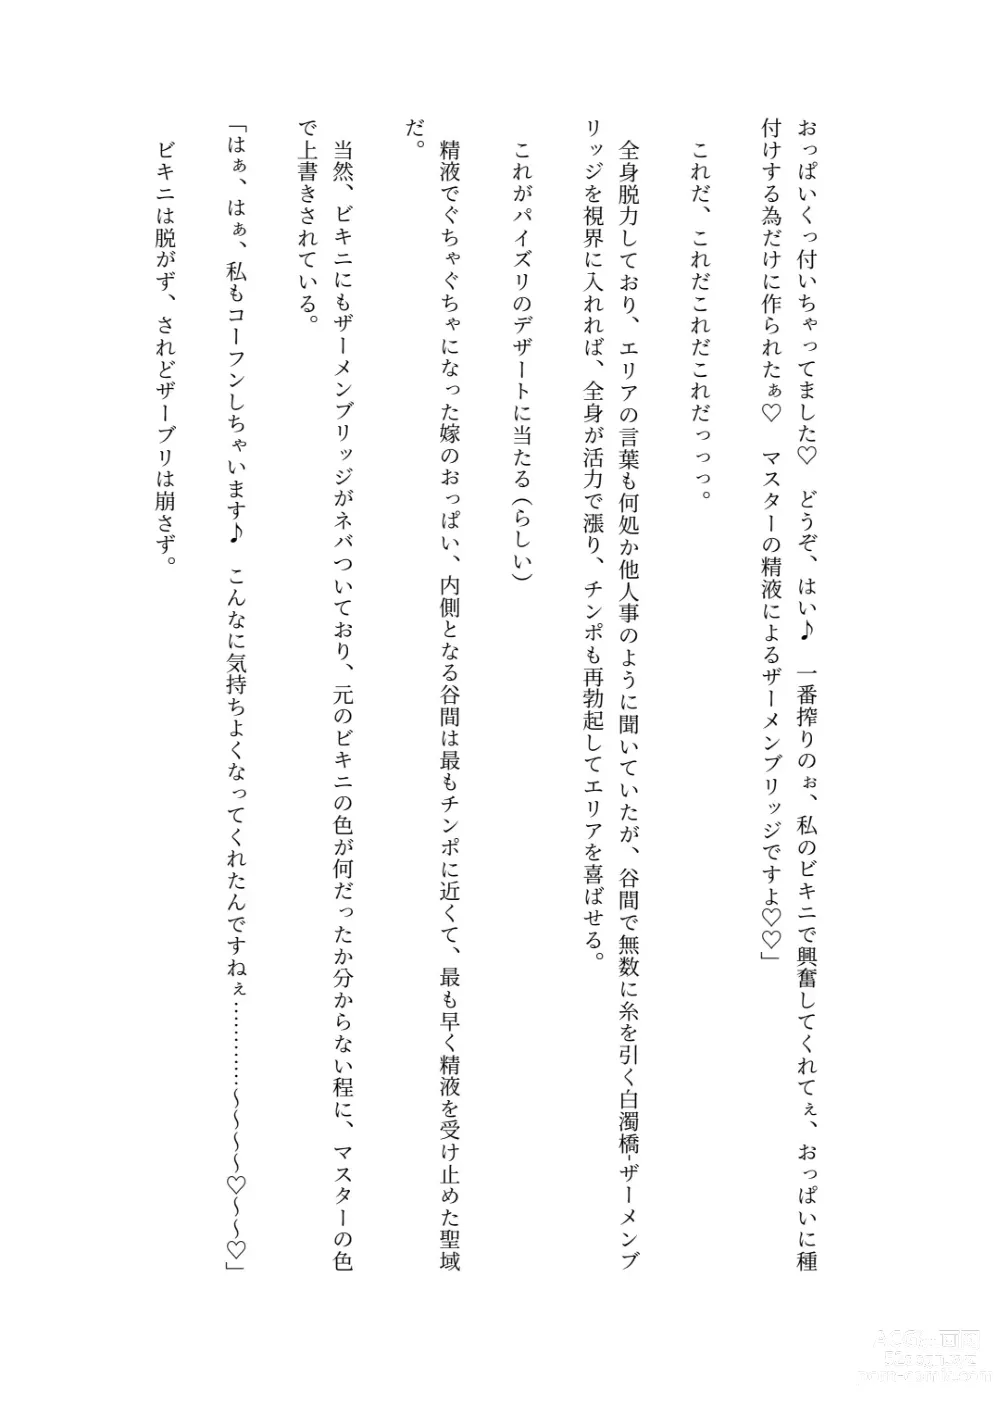 おっぱいくっ付いちゃってました♡　どうぞ、はい♪　一番搾りのぉ、私のビキニで興奮してくれてぇ、おっぱいに種
付けする為だけに作られたぁ♡　マスターの精液によるザーメンブリッジですよ♡♡」
これだ、これだこれだこれだっっっ。
全身脱力しており、エリアの言葉も何処か他人事のように聞いていたが、谷間で無数に糸を引く白濁橋-ザーメンブ
リッジを視界に入れれば、全身が活力で漲り、チンポも再勃起してエリアを喜ばせる。
これがパイズリのデザートに当たる（らしい）
精液でぐちゃぐちゃになった嫁のおっぱい、内側となる谷間は最もチンポに近くて、最も早く精液を受け止めた聖域
だ。
当然、ビキニにもザーメンブリッジがネバついており、元のビキニの色が何だったか分からない程に、マスターの色
で上書きされている。
「はぁ、はぁ、私もコーフンしちゃいます♪　こんなに気持ちよくなってくれたんですねぇ…………～～～～♡～～♡」
ビキニは脱がず、されどザーブリは崩さず。